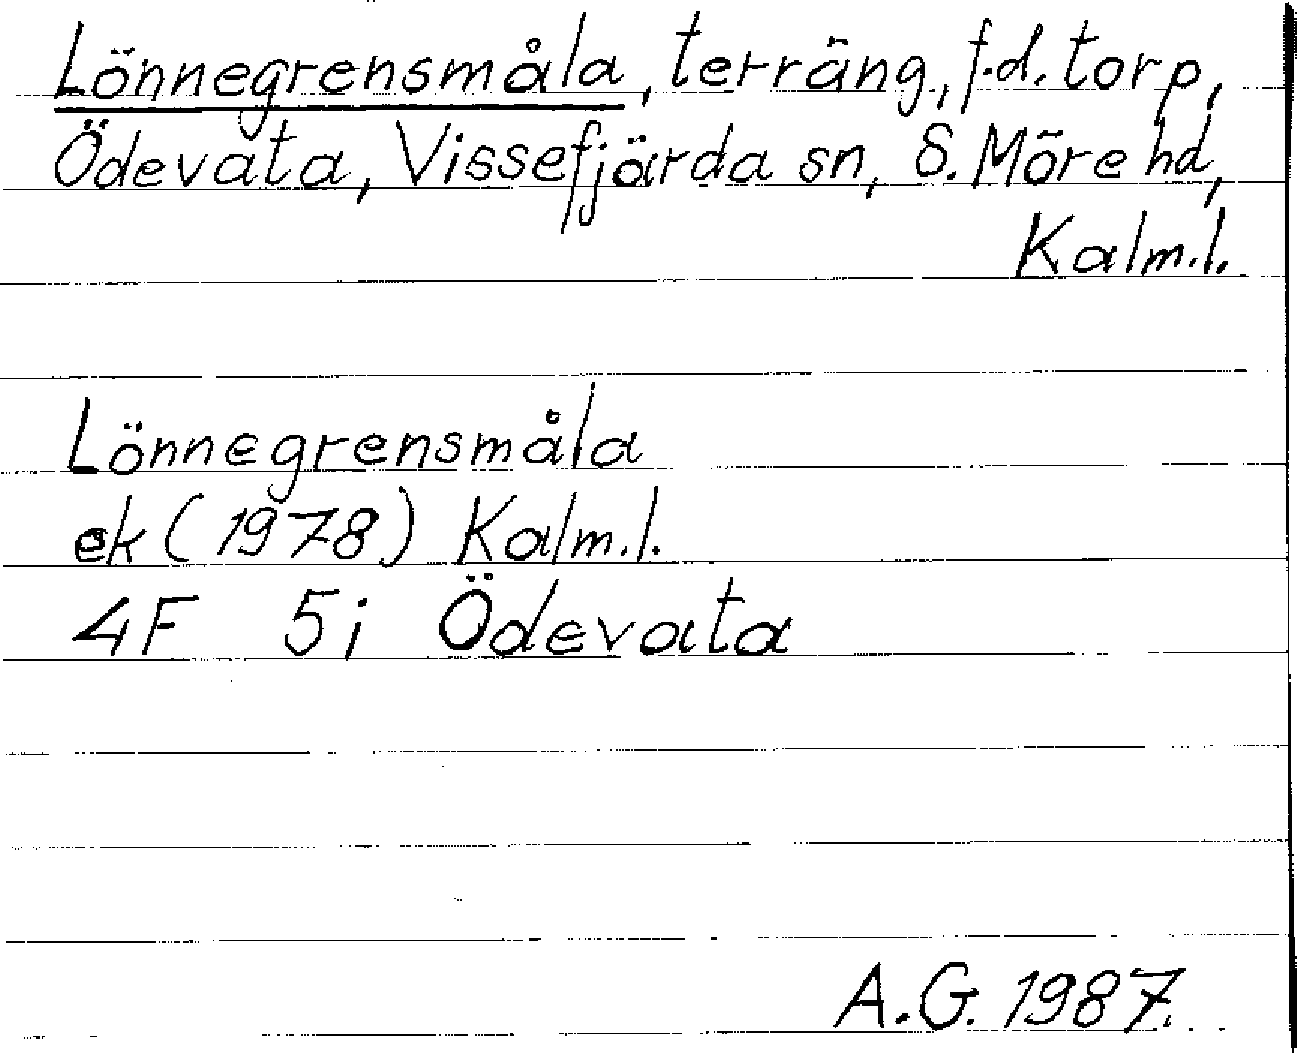 Lönnegrensmåla, terräng, f.d. torp,
Ödevata, Vissefjärda sn, S. Möre hd,
Kalm.l.
Lönnegrensmåla
ek (1978) Kalm.l.
4F 5i Ödevata
A.G. 1987.